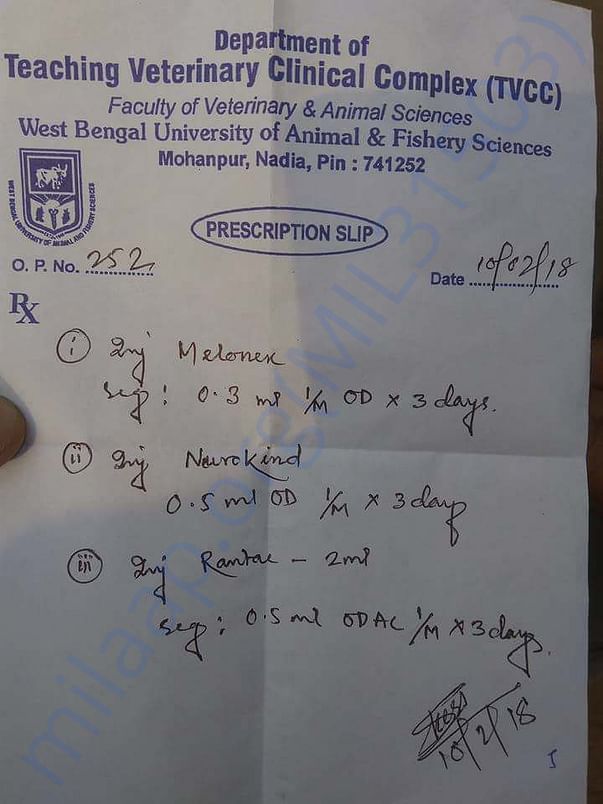 Department of
Teaching Veterinary Clinical Complex (TVCC)
Faculty of Veterinary & Animal Sciences
West Bengal University of Animal & Fishery Sciences
Mohanpur, Nadia, Pin : 741252
WEST BENGAL UNIVERSITY OF ANIMAL AND FISHERY SCIENCES
PRESCRIPTION SLIP
O. P. No. 252
Date 10/02/18
Rx
(i) Inj Melonex
Sig : 0.3 ml I/M OD x 3 days.
(ii) Inj Neurokind
0.5 ml OD I/M x 3 day
(iii) Inj Rantac - 2ml
Sig : 0.5 ml OD AC I/M x 3 days.
10/2/18
milaap.org(MIL31503)